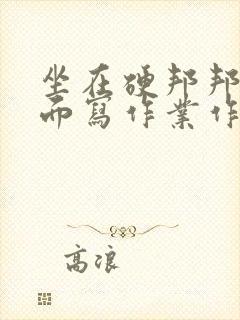 坐在硬邦邦
而寫作業作
高浪